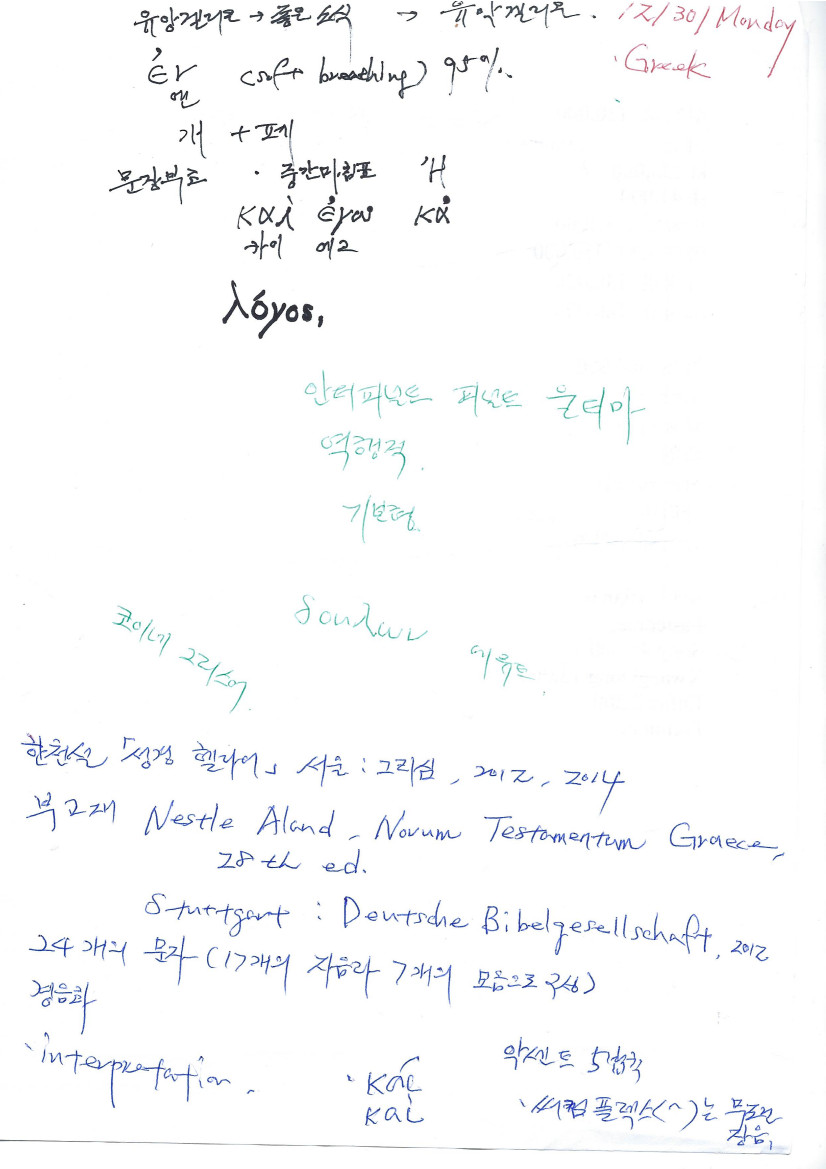 유앙겔리코 → 좋은 소식 → 유악겔리온. 12/30/Monday
·Greek
ἐν (soft breathing) 95%.
엔
개 + 폐
문장부호 · 중간마침표 Ἠ
καὶ ἐγω κἀ
카이 에고
λόγος,
안터피널트 피널트 울티마
역행적
기본형
코이네 그리스어
δουλων
에큐트
한천설 「성경 헬라어」 서울 : 그리심, 2012, 2014
부교재 Nestle Aland, Novum Testamentum Graece,
28th ed.
Stuttgart : Deutsche Bibelgesellschaft, 2012
24개의 문자 (17개의 자음과 7개의 모음으로 구성)
경음화
·interpretation.
·κάι
καὶ
악센트 5법칙
·써컴플렉스(~)는 무조건
장음,